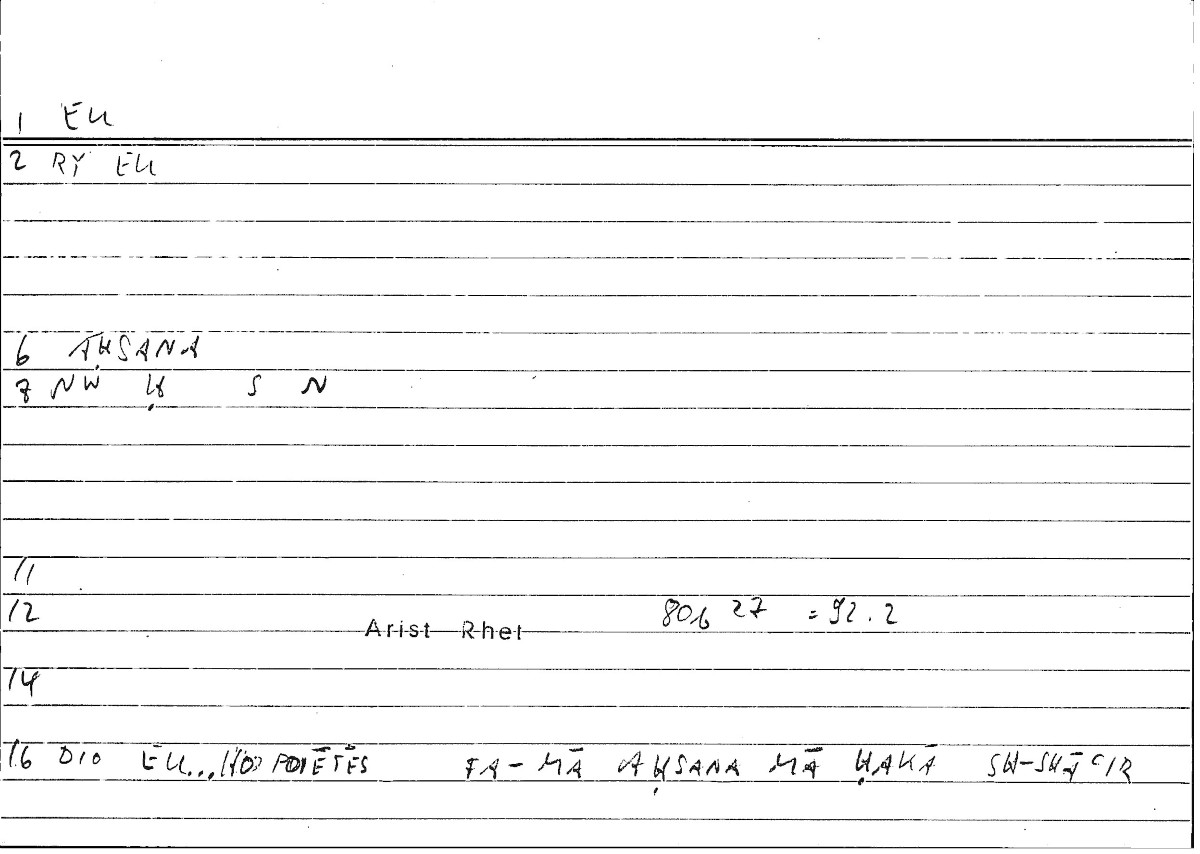 1 EU
2 RY EU
6 AḤSANA
7 NW Ḥ S N
11
12 Arist Rhet 80b 27 = 92.2
14
16 DIO EU...HO POIĒTĒS FA-MĀ AḤSANA MĀ ḤAKĀ SH-SHĀʿIR